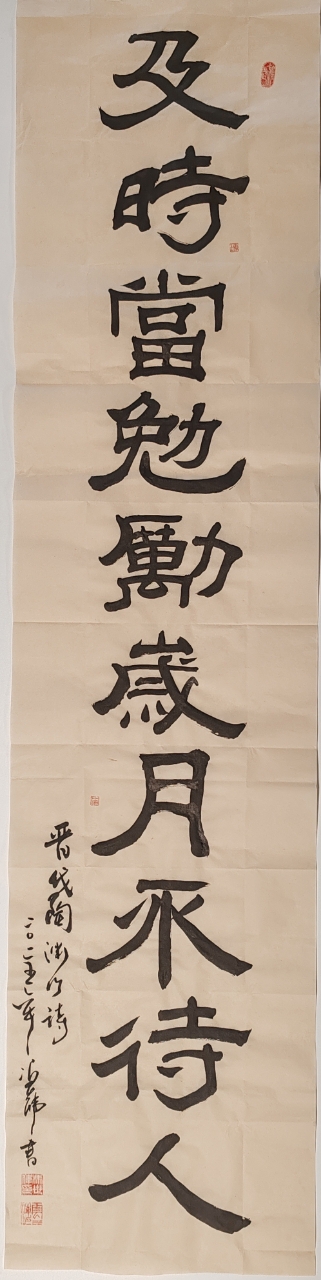 及時當勉勵歲月不待人
晋代陶渊明詩
二〇二五年
書